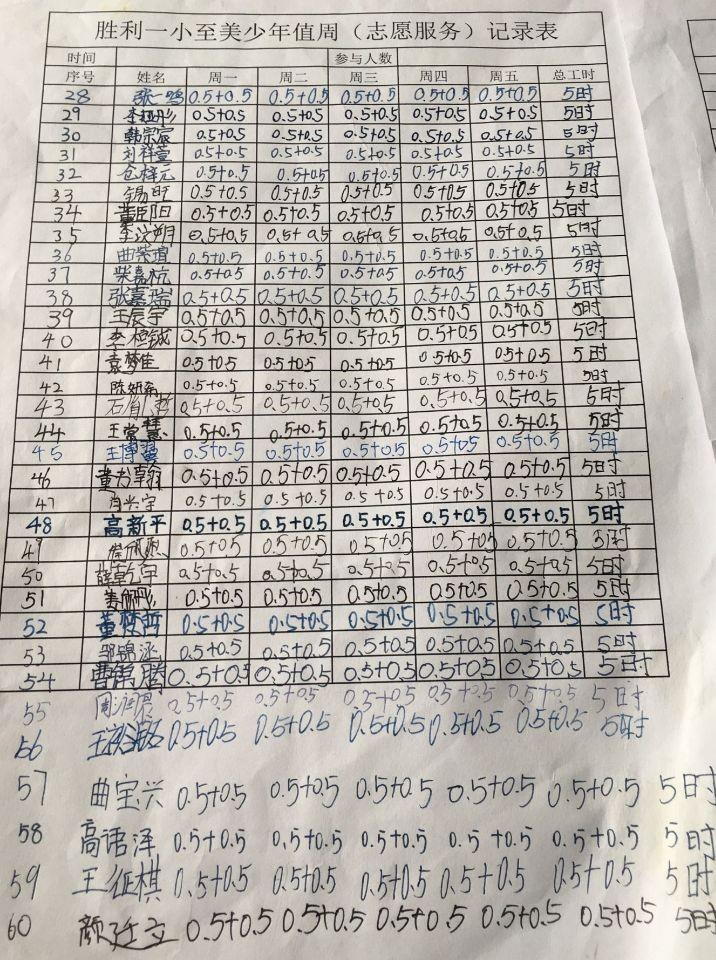 胜利一小至美少年值周（志愿服务）记录表
时间 参与人数
序号 姓名 周一 周二 周三 周四 周五 总工时
28 张一鸣 0.5+0.5 0.5+0.5 0.5+0.5 0.5+0.5 0.5+0.5 5时
29 0.5+0.5 0.5+0.5 0.5+0.5 0.5+0.5 0.5+0.5 5时
30 韩宗宸 0.5+0.5 0.5+0.5 0.5+0.5 0.5+0.5 0.5+0.5 5时
31 刘祥萱 0.5+0.5 0.5+0.5 0.5+0.5 0.5+0.5 0.5+0.5 5时
32 0.5+0.5 0.5+0.5 0.5+0.5 0.5+0.5 0.5+0.5 5时
33 0.5+0.5 0.5+0.5 0.5+0.5 0.5+0.5 0.5+0.5 5时
34 0.5+0.5 0.5+0.5 0.5+0.5 0.5+0.5 0.5+0.5 5时
35 0.5+0.5 0.5+0.5 0.5+0.5 0.5+0.5 0.5+0.5 5时
36 0.5+0.5 0.5+0.5 0.5+0.5 0.5+0.5 0.5+0.5 5时
37 柴嘉杭 0.5+0.5 0.5+0.5 0.5+0.5 0.5+0.5 0.5+0.5 5时
38 张嘉瑞 0.5+0.5 0.5+0.5 0.5+0.5 0.5+0.5 0.5+0.5 5时
39 王辰宇 0.5+0.5 0.5+0.5 0.5+0.5 0.5+0.5 0.5+0.5 5时
40 0.5+0.5 0.5+0.5 0.5+0.5 0.5+0.5 0.5+0.5 5时
41 袁梦佳 0.5+0.5 0.5+0.5 0.5+0.5 0.5+0.5 0.5+0.5 5时
42 0.5+0.5 0.5+0.5 0.5+0.5 0.5+0.5 0.5+0.5 5时
43 0.5+0.5 0.5+0.5 0.5+0.5 0.5+0.5 0.5+0.5 5时
44 0.5+0.5 0.5+0.5 0.5+0.5 0.5+0.5 0.5+0.5 5时
45 王博翼 0.5+0.5 0.5+0.5 0.5+0.5 0.5+0.5 0.5+0.5 5时
46 0.5+0.5 0.5+0.5 0.5+0.5 0.5+0.5 0.5+0.5 5时
47 肖兴宇 0.5+0.5 0.5+0.5 0.5+0.5 0.5+0.5 0.5+0.5 5时
48 高新平 0.5+0.5 0.5+0.5 0.5+0.5 0.5+0.5 0.5+0.5 5时
49 0.5+0.5 0.5+0.5 0.5+0.5 0.5+0.5 0.5+0.5 5时
50 0.5+0.5 0.5+0.5 0.5+0.5 0.5+0.5 0.5+0.5 5时
51 0.5+0.5 0.5+0.5 0.5+0.5 0.5+0.5 0.5+0.5 5时
52 0.5+0.5 0.5+0.5 0.5+0.5 0.5+0.5 0.5+0.5 5时
53 邹锦涵 0.5+0.5 0.5+0.5 0.5+0.5 0.5+0.5 0.5+0.5 5时
54 0.5+0.5 0.5+0.5 0.5+0.5 0.5+0.5 0.5+0.5 5时
55 0.5+0.5 0.5+0.5 0.5+0.5 0.5+0.5 0.5+0.5 5时
56 0.5+0.5 0.5+0.5 0.5+0.5 0.5+0.5 0.5+0.5 5时
57 曲宝兴 0.5+0.5 0.5+0.5 0.5+0.5 0.5+0.5 0.5+0.5 5时
58 高语泽 0.5+0.5 0.5+0.5 0.5+0.5 0.5+0.5 0.5+0.5 5时
59 王征棋 0.5+0.5 0.5+0.5 0.5+0.5 0.5+0.5 0.5+0.5 5时
60 0.5+0.5 0.5+0.5 0.5+0.5 0.5+0.5 0.5+0.5 5时